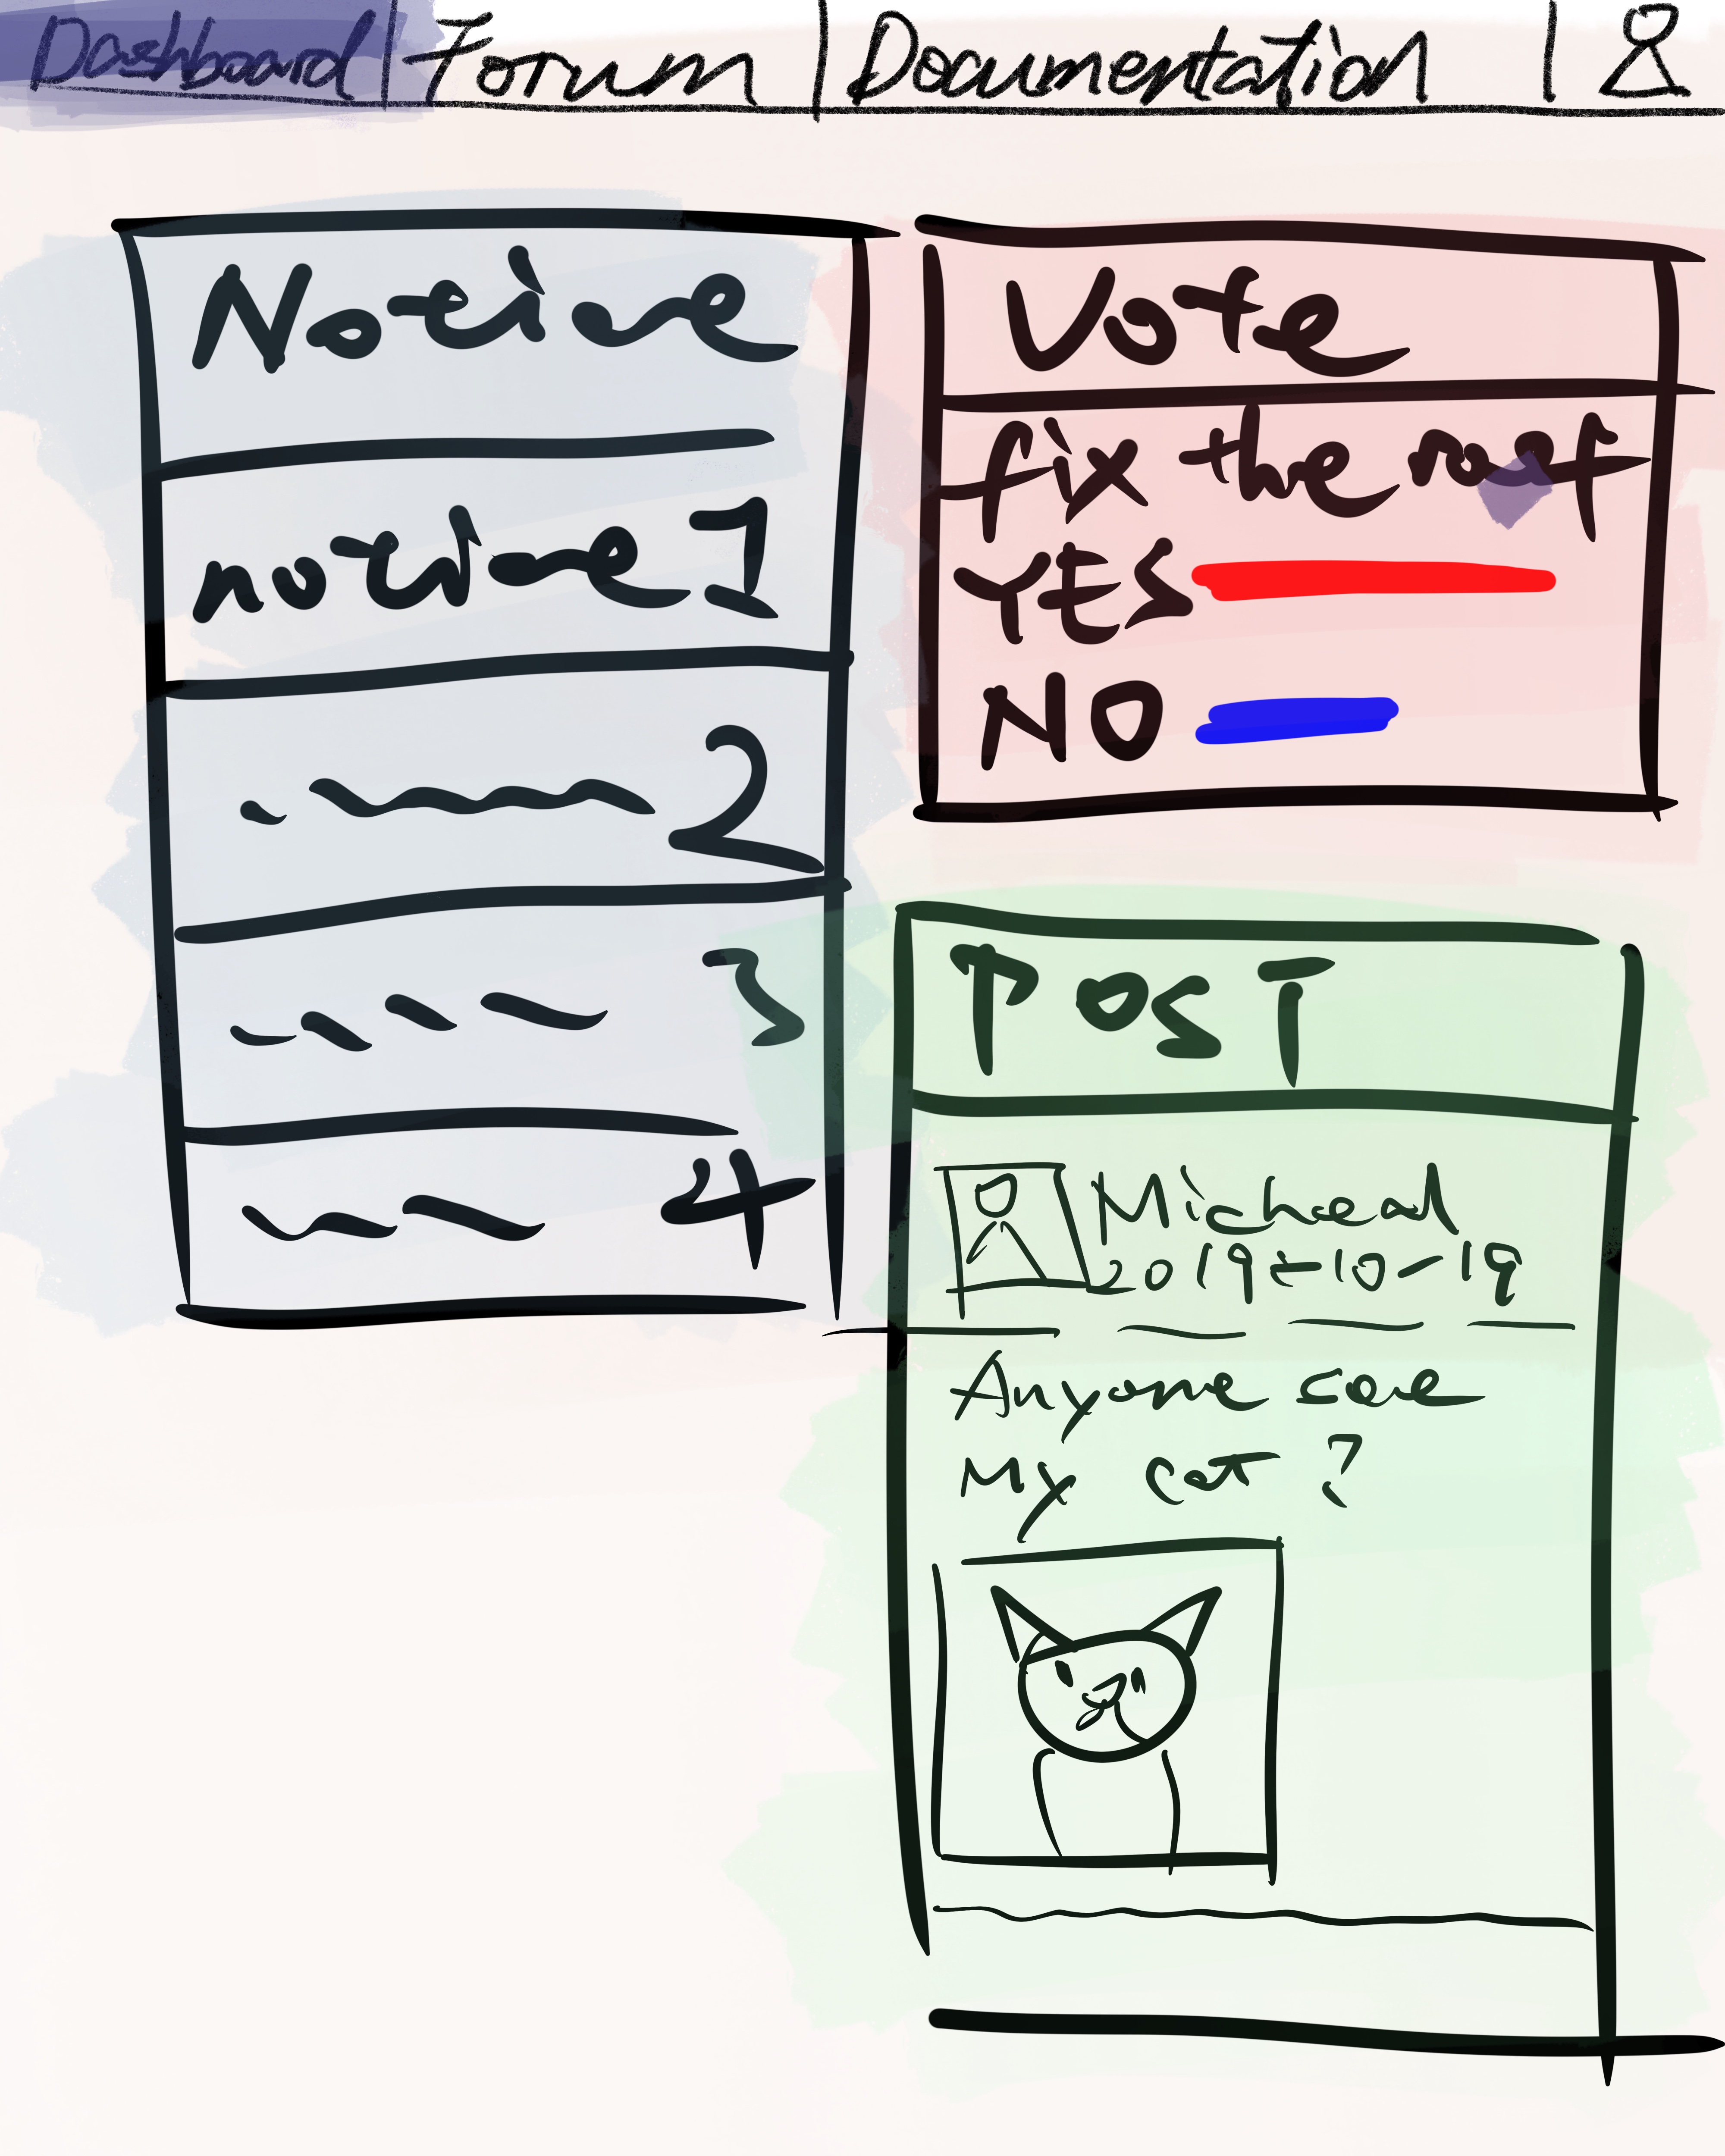 Dashboard | Forum | Documentation |
Notice
notice 1
2
3
4
Vote
fix the roof
YES
NO
POST
Micheal
2019-10-19
Anyone see
My cat ?